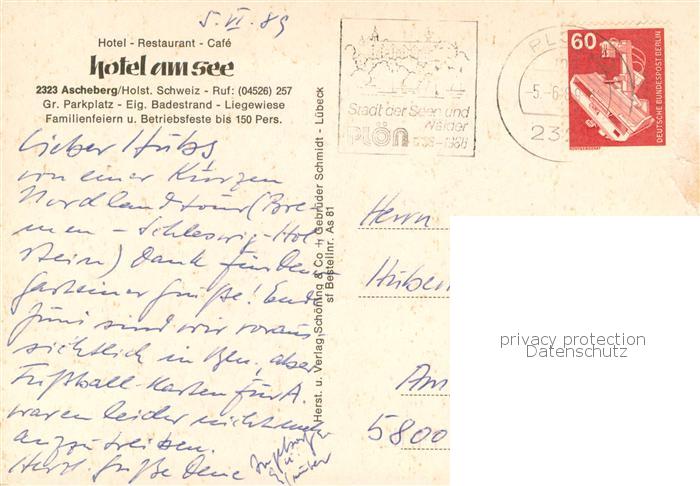 5. VI. 89
Hotel - Restaurant - Café
hotel am see
2323 Ascheberg/Holst. Schweiz - Ruf: (04526) 257
Gr. Parkplatz - Eig. Badestrand - Liegewiese
Familienfeiern u. Betriebsfeste bis 150 Pers.
Lieber Hubs
von einer kurzen
Nordlandtour (Bre-
men - Schleswig-Hol-
stein) Dank für den
Gasteiner Grüße! End
Juni sind wir voraus-
sichtlich in Bln, aber
Fußball-Karten für A.
waren leider nicht mehr
aufzutreiben.
Herzl. Grüße Deine
Ingeburg
u.
Günter
Herst. u. Verlag Schöning & Co + Gebrüder Schmidt - Lübeck
sf Bestellnr. As 81
Stadt der Seen und
Wälder
PLÖN
PL
5.-6.
232
60
DEUTSCHE BUNDESPOST BERLIN
Herrn
Huben
Am
5800
privacy protection
Datenschutz